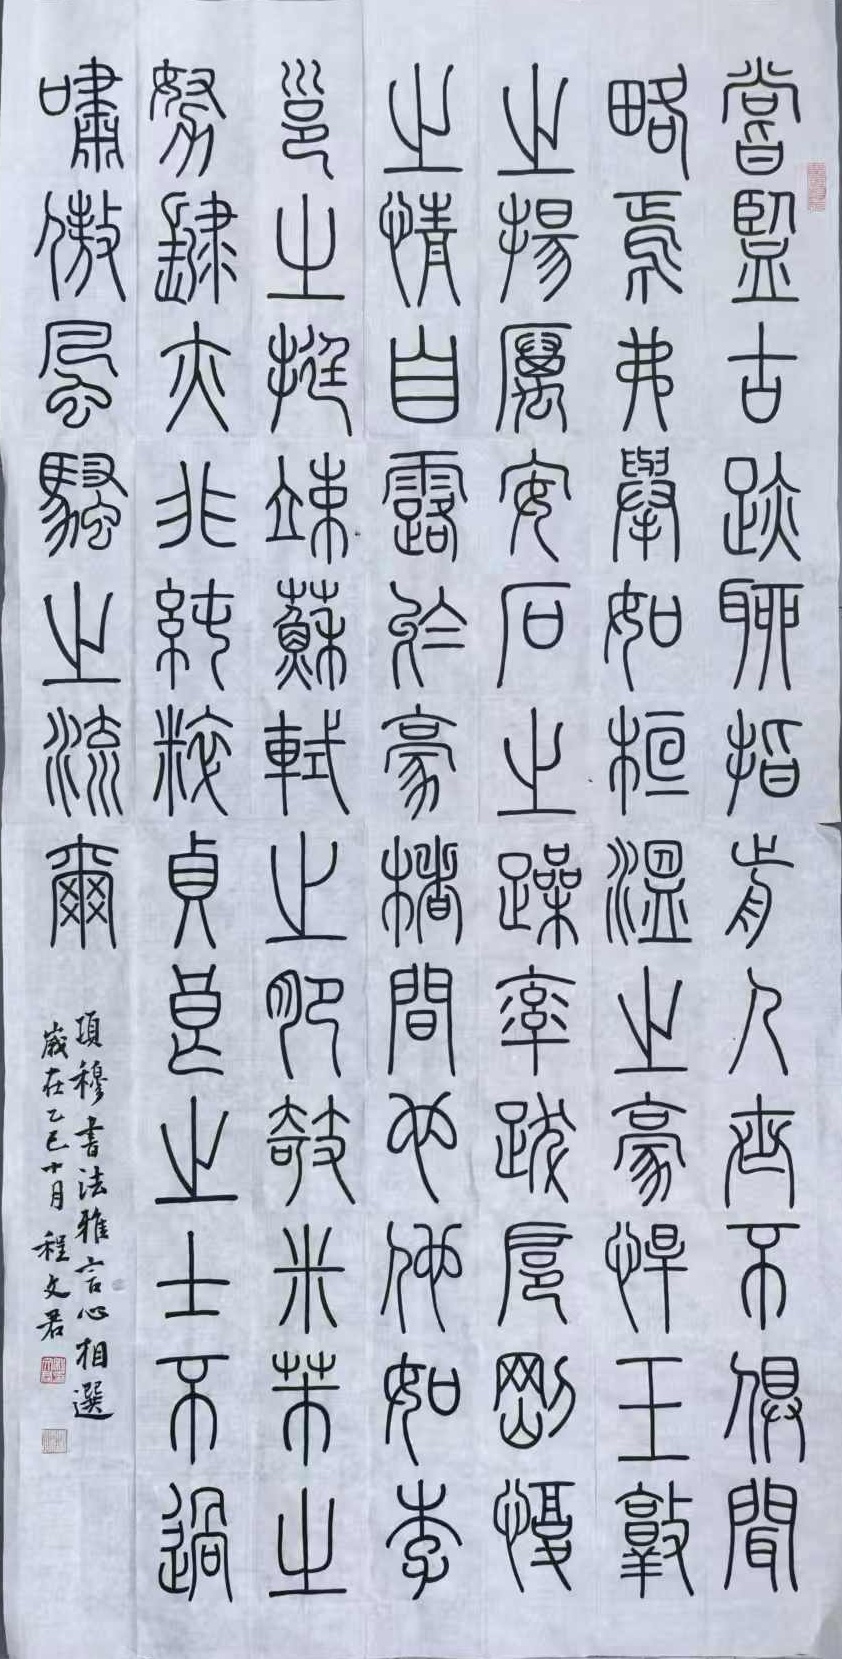 嘗監古跡聊指前人齊不俱聞
略焉弗舉如桓溫之豪悍王敦
之揚厲安石之躁率跋扈剛愎
之情自露於豪楮間也他如李
邕之挺竦蘇軾之肥欹米芾之
努肆亦非純粹貞良之士不過
嘯傲風騷之流爾
項穆書法雅言心相選
歲在乙巳十月程文君